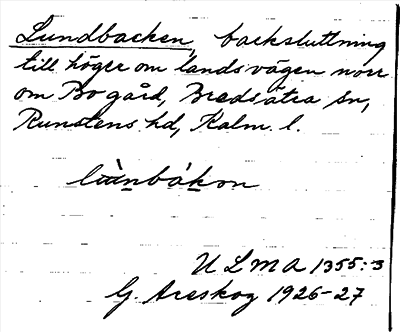 Lundbacken, backsluttning
till höger om landsvägen norr
om Bo gård, Bredsätra sn,
Runstens hd, Kalm. l.
lùnbákon
ULMA 1355:3
G. Areskog 1926-27